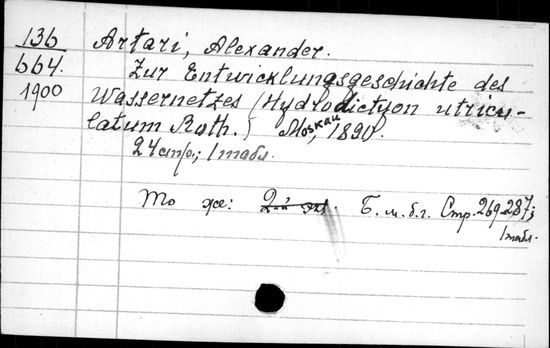 136 Artari, Alexander.
664. Zur Entwicklungsgeschichte des
1900 Wassernetzes (Hydrodictyon utricu-
latum Roth.) Moskau, 1890.
24 стр.; 1 табл.
То же: 2-й экз. Б. м. б. г. Стр. 269-287;
1 табл.